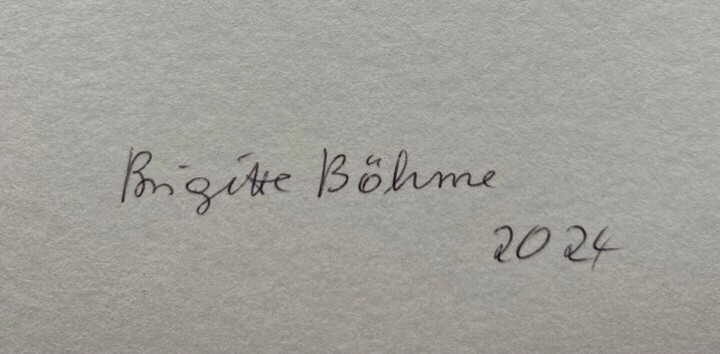 Brigitte Böhme
2024